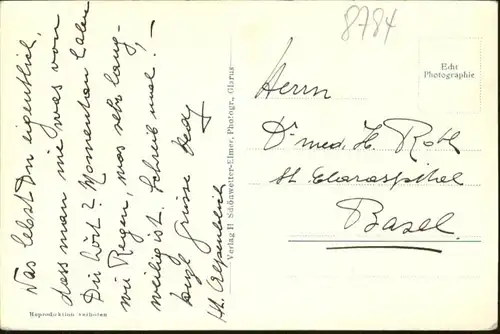 Was lebst Du eigentlich,
dass man nie was von
Dir hört? Momentan haben
wir Regen, was sehr lang-
weilig ist. Schreib mal. –
Grüsse
Verlag H Schönwetter-Elmer, Photogr., Glarus
Reproduktion verboten
8784
Edit
Photographie
Herrn
Dr med. H. Roth
St. Claraspital
Basel.